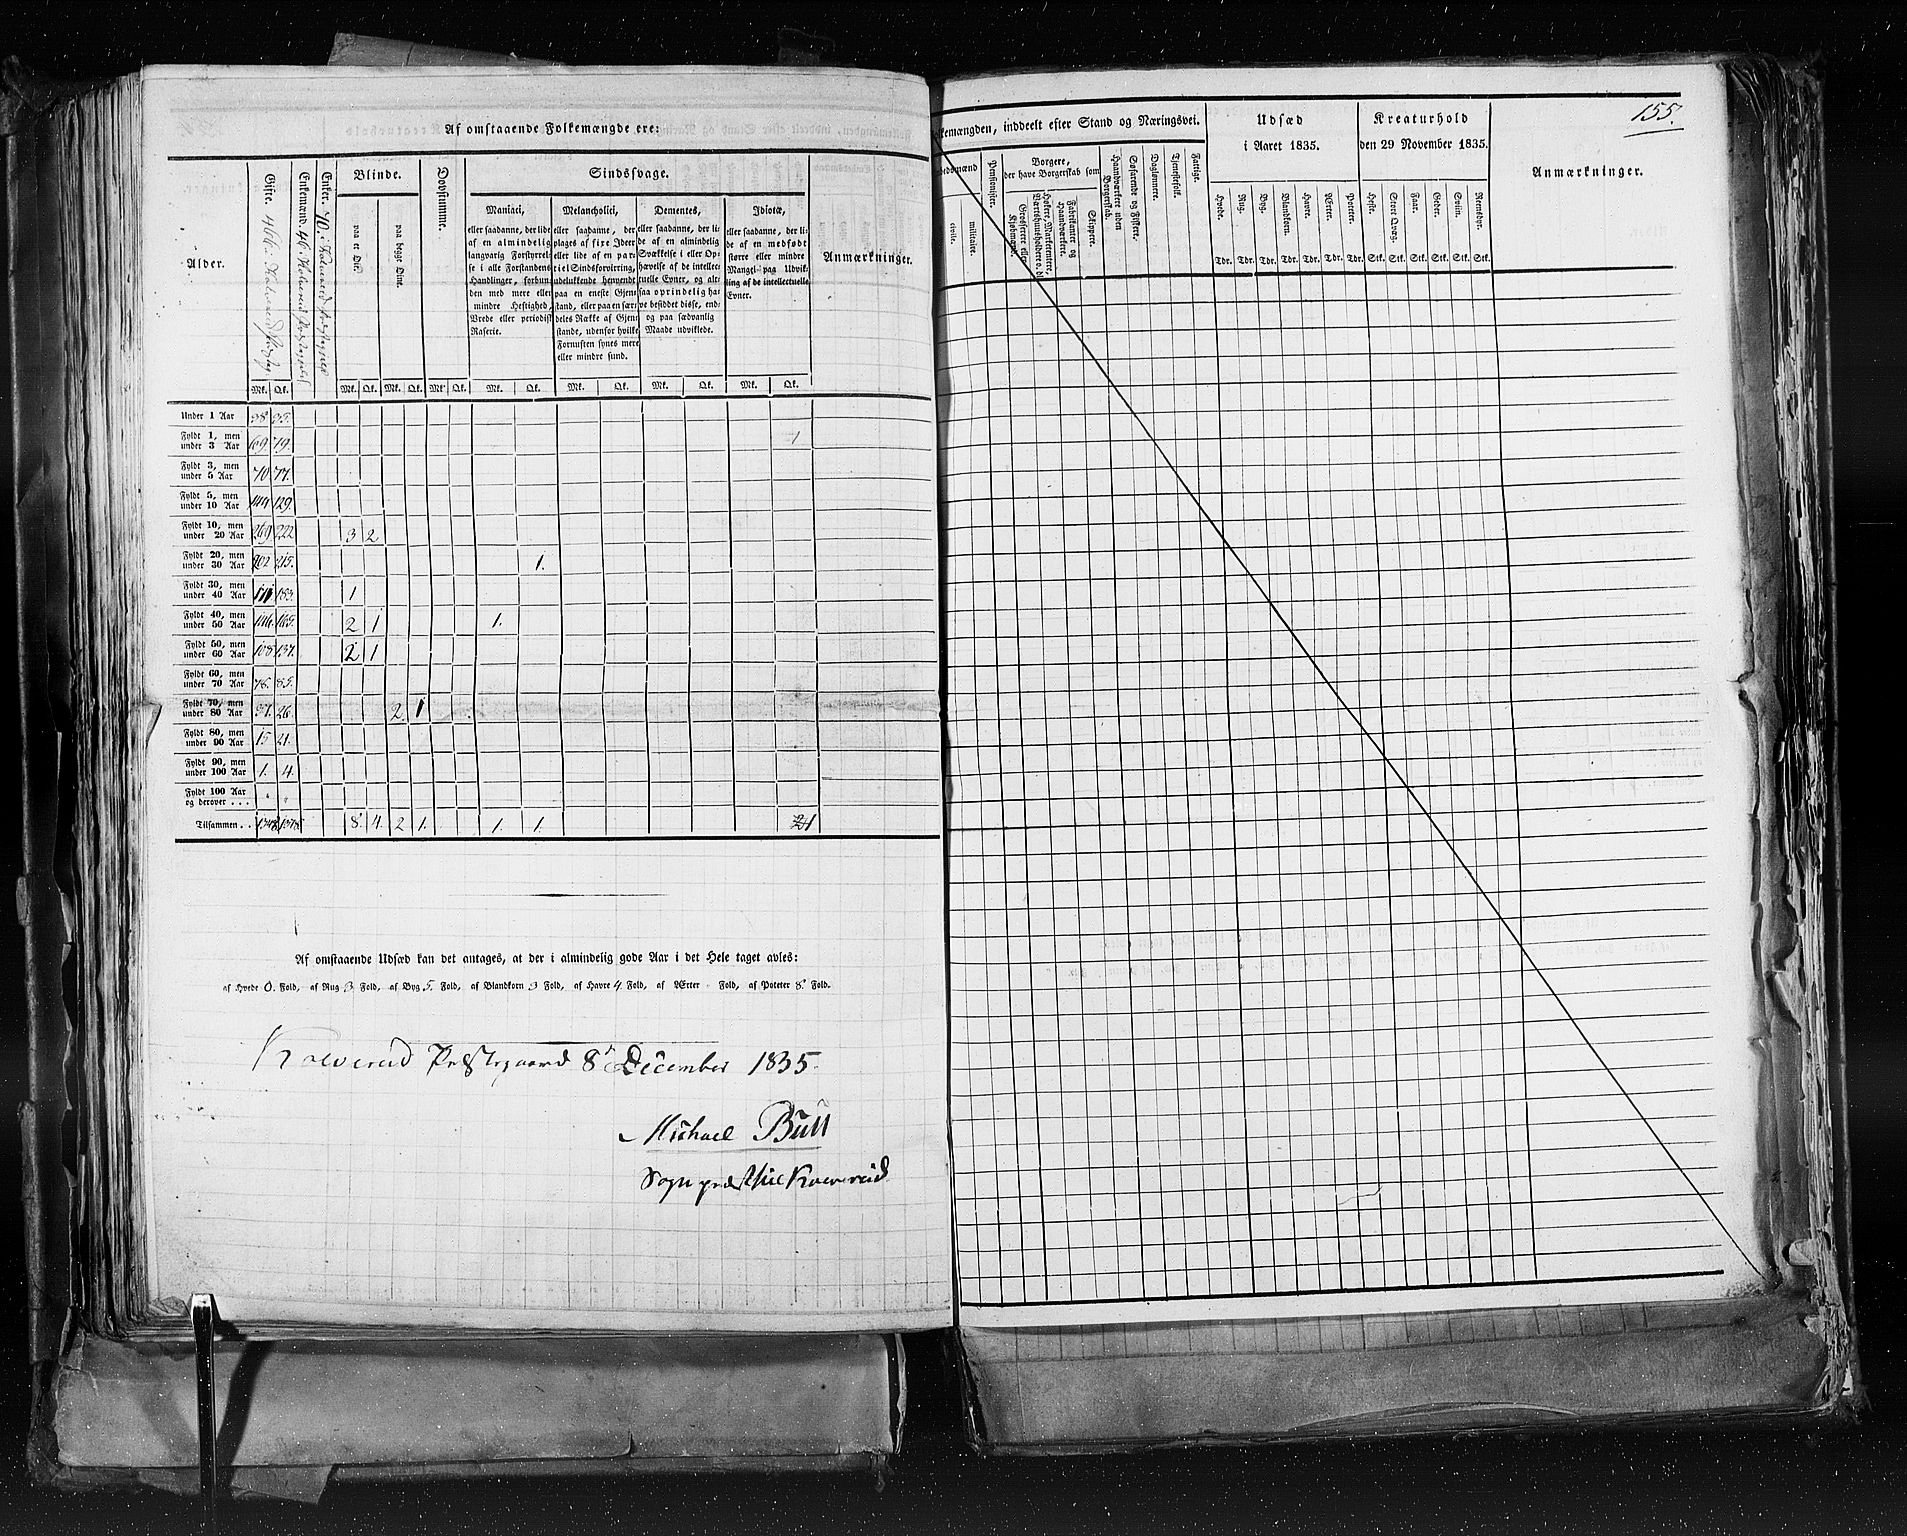 Af omstaaende Folkemængde ere:
Alder.
Gifte. 466 i Kolvereid Præstegj.
Enkemænd. 46 i Kolvereid Præstegjeld
Enker. 70 i Kolvereid Præstegjeld
Blinde.
paa et Øie.
paa begge Øine.
Døvstumme.
Sindssvage.
Maniaci,
eller saadanne, der lide
af en almindelig
langvarig Forstyrrel-
se i alle Forstandens
Handlinger, forbun-
den med mere eller
mindre Heftighed,
Vrede eller periodisk
Raserie.
Melancholici,
eller saadanne, der
plages af fixe Ideer
eller lide af en par-
tiel Sindsforvirring,
udelukkende henvendt
paa en eneste Gjen-
stand, eller paa en sær-
deles Række af Gjen-
stande, udenfor hvilke
Fornuften synes mere
eller mindre sund.
Dementes,
eller saadanne, der li-
de af en almindelig
Svækkelse i eller Op-
hævelse af de intellec-
tuelle Evner, og alt-
saa oprindelig ha-
ve besiddet disse, end-
og paa sædvanlig
Maade udviklede.
Idiotæ,
eller saadanne, der li-
de af en medfødt
større eller mindre
Mangel paa Udvik-
ling af de intellectuelle
Evner.
Anmærkninger.
Mk. Qk. Mk. Qk. Mk. Qk. Mk. Qk. Mk. Qk. Mk. Qk. Mk. Qk. Mk. Qk.
Under 1 Aar 38 35.
Fyldt 1, men under 3 Aar 69. 79. 1
Fyldt 3, men under 5 Aar 70 77.
Fyldt 5, men under 10 Aar 144 129.
Fyldt 10, men under 20 Aar 269 222 3 2
Fyldt 20, men under 30 Aar 202 215. 1.
Fyldt 30, men under 40 Aar 183. 1
Fyldt 40, men under 50 Aar 146. 165. 2 1 1.
Fyldt 50, men under 60 Aar 108 137. 2 1
Fyldt 60, men under 70 Aar 78. 85.
Fyldt 70, men under 80 Aar 37. 26. 2 1
Fyldt 80, men under 90 Aar 15 21.
Fyldt 90, men under 100 Aar 1. 4.
Fyldt 100 Aar og derover . . . " "
Tilsammen . . 1378 8. 4. 2 1. 1. 1. 1
Af omstaaende Udsæd kan det antages, at der i almindelig gode Aar i det Hele taget avles:
af Hvede 0. Fold, af Rug 3 Fold, af Byg 5. Fold, af Blandkorn 3 Fold, af Havre 4 Fold, af Ærter - Fold, af Poteter 8 Fold.
Kolvereid Præstegaard 8de December 1835.
Michael Bull
Sognepræst til Kolvereid
155.
Folkemængden, inddeelt efter Stand og Næringsvei.
civile.
militaire.
Pensionister.
Borgere,
der have Borgerskab som
Grosserere eller Kjøbmænd.
Høkere, Marketentere, Værtshuusholdere o. dl.
Fabrikanter og Haandværkere.
Skippere.
Haandværkere uden Borgerskab.
Søfarende og Fiskere.
Daglønnere.
Tjenestefolk.
Fattige.
Udsæd
i Aaret 1835.
Hvede. Rug. Byg. Blandkorn. Havre. Ærter. Poteter.
Tdr. Tdr. Tdr. Tdr. Tdr. Tdr. Tdr.
Kreaturhold
den 29 November 1835.
Heste. Stort Qvæg. Faar. Geder. Sviin. Rensdyr.
Stk. Stk. Stk. Stk. Stk. Stk.
Anmærkninger.